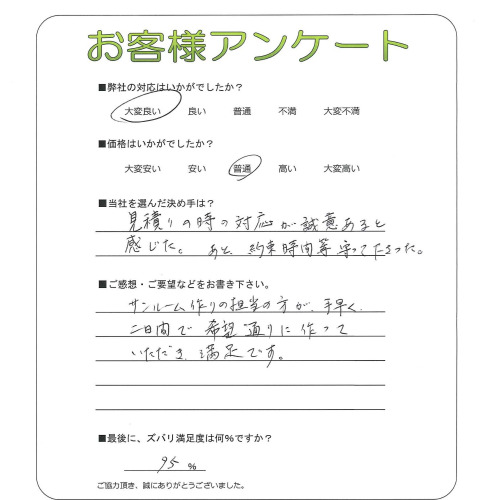 お客様アンケート
■弊社の対応はいかがでしたか？
大変良い 良い 普通 不満 大変不満
■価格はいかがでしたか？
大変安い 安い 普通 高い 大変高い
■当社を選んだ決め手は？
見積りの時の対応が誠意あると
感じた。あと、約束時間等守って下さった。
■ご感想・ご要望などをお書き下さい。
サンルーム作りの担当の方が、手早く
二日間で希望通りに作って
いただき、満足です。
■最後に、ズバリ満足度は何％ですか？
95 ％
ご協力頂き、誠にありがとうございました。